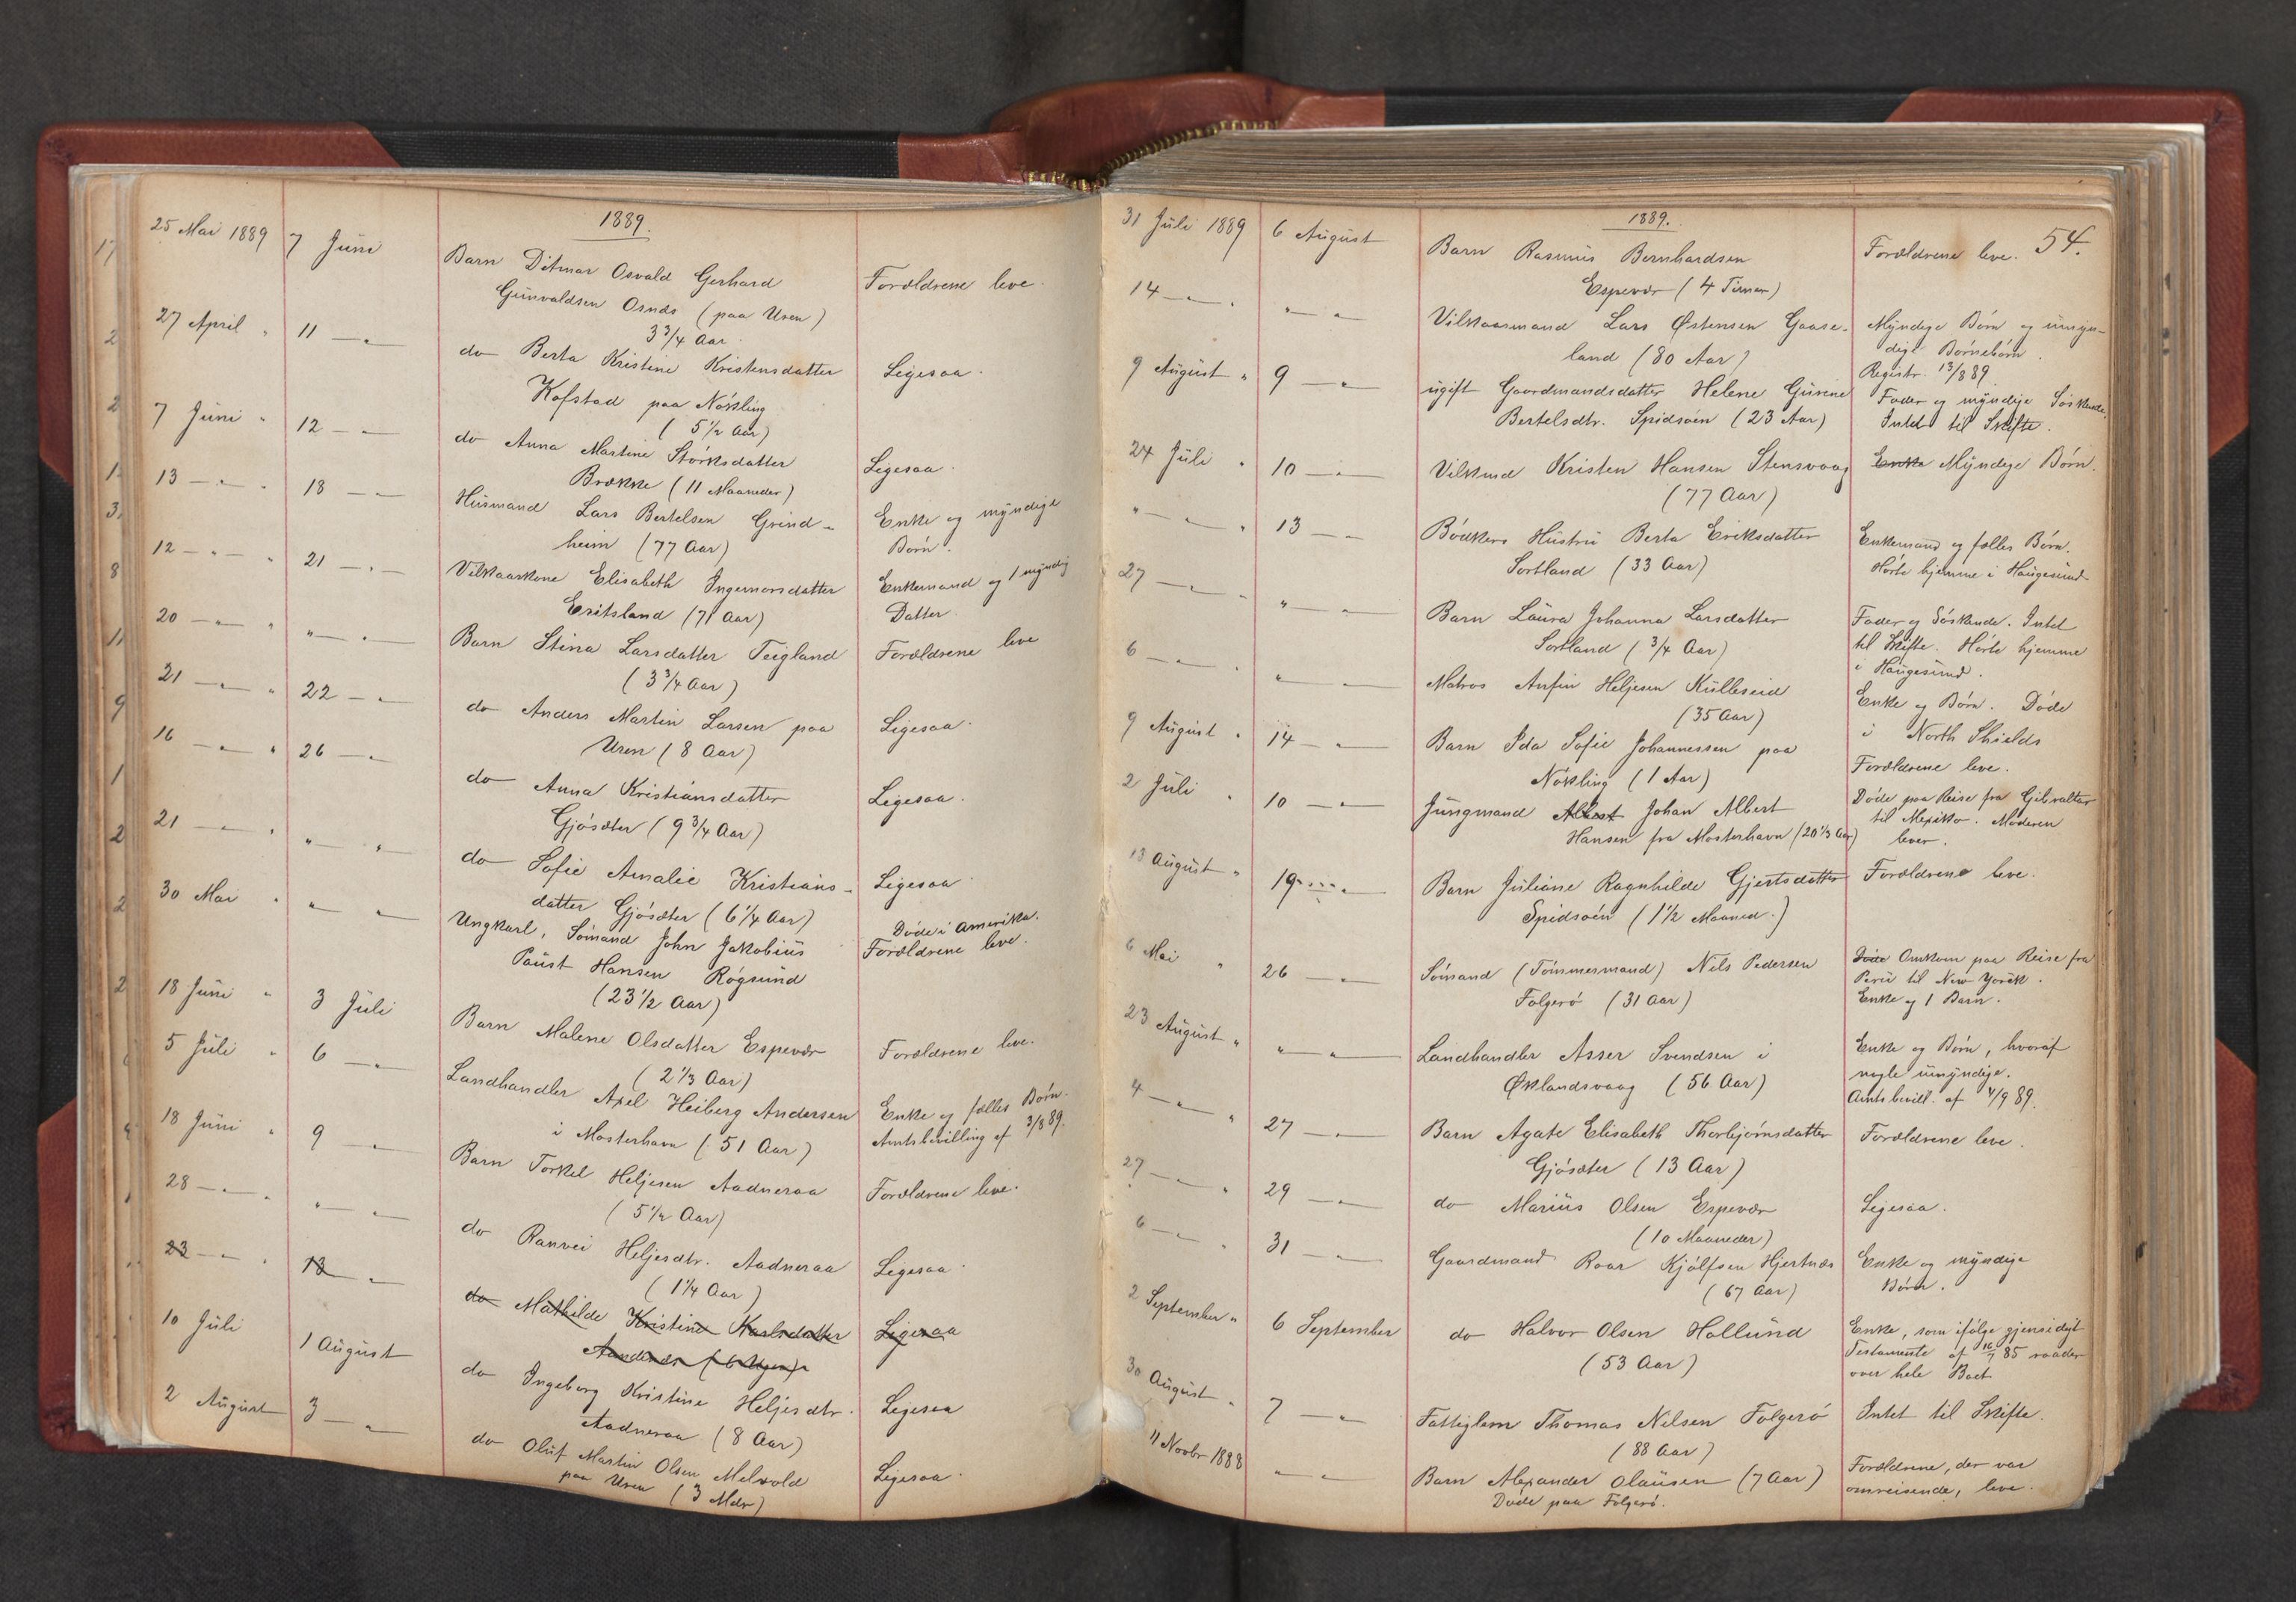 1889.
25 Mai 1889 7 Juni Barn Ditmar Osvald Gerhard Forældrene leve.
Gunvaldsen Osnes (paa Uren)
3 3/4 Aar.
27 April " 11 — " do Berta Kristine Kristensdatter Ligesaa.
Kofstad paa Nökling
(5 1/2 Aar)
7 Juni " 12 — " do Anna Martine Störksdatter Ligesaa.
Brække (11 Maaneder)
13 — " — " 18 — " Husmand Lars Bertelsen Grind- Enke og myndige
heim (77 Aar) Börn.
12 — " — " 21 — " — Vilkaarskone Elisabeth Ingemorsdatter Enkemand og 1 myndig
Eritsland (71 Aar) Datter.
20 — " — " " — " — Barn Stina Larsdatter Teigland Forældrene leve
(3 3/4 Aar)
21 — " — " 22 — " do Anders Martin Larsen paa Ligesaa.
Uren (8 Aar)
16 — " — " 26 — " do Anna Kristiansdatter Ligesaa.
Gjösæter (9 3/4 Aar)
21 — " — " " " do Sofie Amalie Kristians- Ligesaa.
datter Gjösæter (6 1/4 Aar)
30 Mai " " " — Ungkarl, Sömand John Jakobius Döde i Amerika.
Paust Hansen Rögsund Forældrene leve.
(23 1/2 Aar)
18 Juni " 3 Juli Barn Malene Olsdatter Espevær Forældrene leve.
(2 1/3 Aar)
5 Juli " 6 — " Landhandler Axel Heiberg Andersen Enke og fælles Börn.
i Mosterhavn (51 Aar) Amtsbevilling af 3/8 89.
18 Juni " 9 — " Barn Torkel Heljesen Aadneraa Forældrene leve.
(5 1/2 Aar)
28 — " — " " — " — do Ranvei Heljesdtr. Aadneraa Ligesaa.
(1 1/4 Aar)
23 — " — " 13 — " do Mathilde Kristine Karlsdatter Ligesaa
10 Juli 1 August do Ingeborg Kristine Heljesdtr. Ligesaa
Aadneraa (8 Aar)
2 August 3 — " do Oluf Martin Olsen Melvold Ligesaa.
paa Uren (3 Mdr)
1889. 54.
31 Juli 1889 6 August Barn Rasmus Bernhardsen Forældrene leve.
Espevær (4 Timer)
14 — " — " " — " Vilkaarsmand Lars Østensen Gaase- Myndige Börn og umyn-
land (80 Aar) dige Börnebörn.
Registr. 13/8 89
9 August " 9 — " ugift Gaardmandsdatter Helene Gurine Fader og myndige Söskende.
Bertelsdtr. Spidsöen (23 Aar) Intet til Skifte.
24 Juli " 10 — " Vilkmd Kristen Hansen Stensvaag Enke Myndige Börn.
(77 Aar)
" — " — " 13 — " Bödkers Hustru Berta Eriksdatter Enkemand og fælles Börn.
Sortland (33 Aar) Hörte hjemme i Haugesund
27 — " — " " — " — Barn Laura Johanna Larsdatter Fader og Söskende. Intet
Sortland (3/4 Aar) til Skifte. Hörte hjemme
i Haugesund.
6 — " — " " — " — Matros Anfin Heljesen Kulleseid Enke og Börn. Döde
(35 Aar) i North Shields
9 August " 14 — " Barn Ida Sofie Johannessen paa Forældrene leve.
Nökling (1 Aar)
2 Juli " 10 — " Jungmand Albert Johan Albert Döde paa Reise fra Gibraltar
Hansen fra Mosterhavn (20 1/3 Aar) til Mexiko. Moderen
lever.
13 August " 19 — " Barn Juliane Ragnhilde Gjertsdatter Forældrene leve.
Spidsöen (1 1/2 Maaned.)
6 Mai " 26 — " Sömand (Tömmermand) Nils Pedersen Döde Omkom paa Reise fra
Folgerö (31 Aar) Peru til New York.
Enke og 1 Barn.
23 August " " — " — Landhandler Asser Svendsen i Enke og Börn, hvoraf
Øklandsvaag (56 Aar) nogle umyndige.
Amtsbevill. af 4/9 89.
4 — " — " 27 — " Barn Agate Elisabeth Thorbjörnsdatter Forældrene leve.
Gjösæter (13 Aar)
27 — " — " 29 — " do Marius Olsen Espevær Ligesaa.
(10 Maaneder)
6 — " — " 31 — " Gaardmand Roar Kjölfsen Hjertnæs Enke og myndige
(67 Aar) Börn.
2 September " 6 September do Halvor Olsen Hollund Enke, som ifölge gjensidigt
(53 Aar) Testamente af 16/7 85 raader
over hele Boet
30 August " 7 — " Fattiglem Thomas Nilsen Folgerö Intet til Skifte.
(88 Aar)
11 Novbr 1888 " — " Barn Alexander Olausen (7 Aar) Forældrene, der var
Döde paa Folgerö. omreisende, leve.